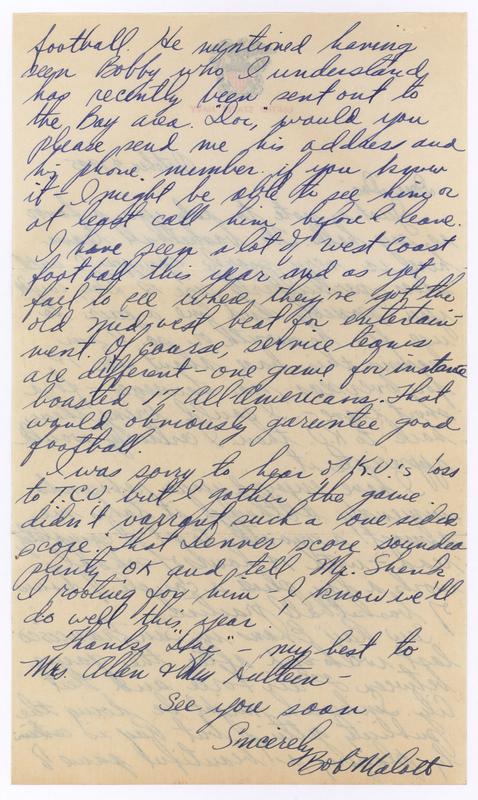 football. He mentioned having
seen Bobby who I understand
has recently been sent out to
the Bay area. "Doc", would you
please send me his address and
his phone number if you know
it - I might be able to see him or
at least call him before I leave.
I have seen a lot of west coast
football this year and as yet
fail to see where they've got the
old midwest beat for entertain-
ment. Of course, service teams
are different - one game for instance
boasted 17 All Americans. That
would obviously garuntee good
football.
I was sorry to hear of K.U.'s loss
to T.C.U. but I gather the game
didn't warrant such a one sided
score. That Denver score sounded
plenty OK and tell Mr. Shenk
I rooting for him - I know we'll
do well this year!
Thanks "Doc" - my best to
Mrs. Allen & Mrs Hulteen -
See you soon
Sincerely
Bob Malott